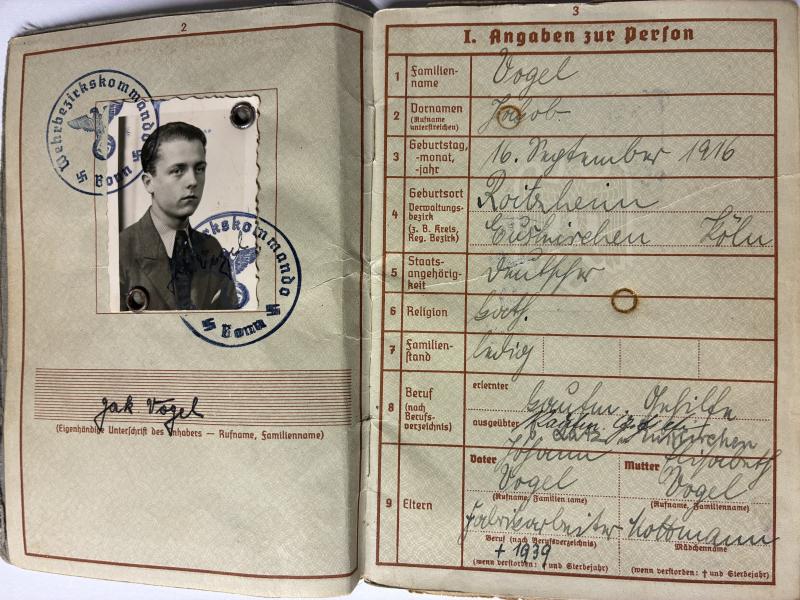 2
Wehrbezirkskommando
Bonn
Wehrbezirkskommando
Bonn
Jak Vogel
(Eigenhändige Unterschrift des Inhabers — Rufname, Familienname)
3
I. Angaben zur Person
1 Familien-
name
Vogel
2 Vornamen
(Rufname
unterstreichen)
Jakob
3 Geburtstag,
-monat,
-jahr
16. September 1916
4 Geburtsort
Verwaltungs-
bezirk
(z. B. Kreis,
Reg. Bezirk)
Roitzheim
Euskirchen Köln
5 Staats-
angehörig-
keit
Deutscher
6 Religion
kath.
7 Familien-
stand
ledig
8 Beruf
(nach
Berufs-
verzeichnis)
erlernter
Kaufm. Gehilfe
ausgeübter
9 Eltern
Vater Johann
Vogel
(Rufname, Familienname)
Fabrikarbeiter
Beruf (nach Berufsverzeichnis)
+ 1939
(wenn verstorben: † und Sterbejahr)
Mutter Elisabeth
Vogel
(Rufname, Familienname)
Mädchenname
(wenn verstorben: † und Sterbejahr)